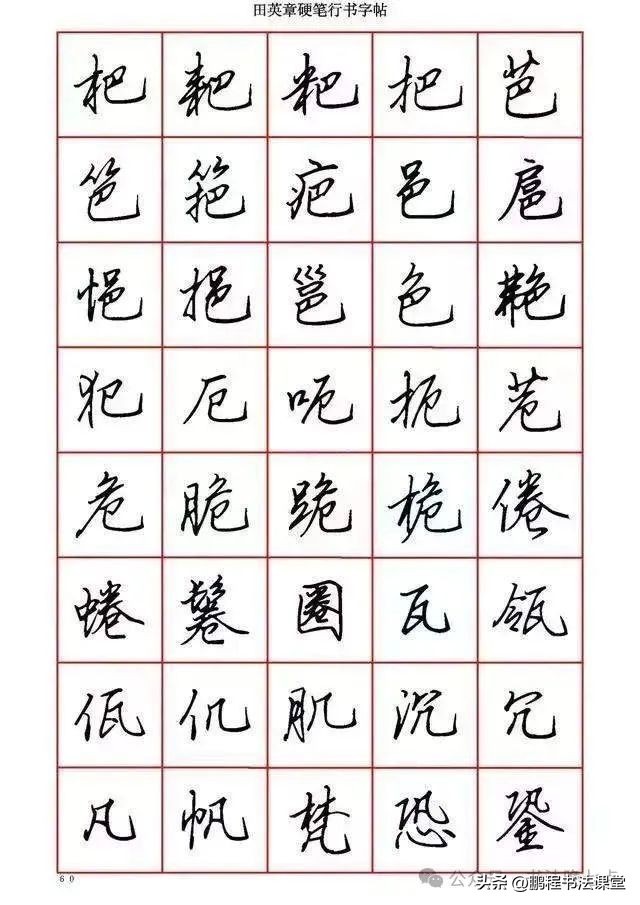 田英章硬笔行书字帖
杷 耙 粑 把 芭
笆 筢 疤 邑 扈
悒 挹 邕 色 艳
犯 厄 呃 扼 苊
危 脆 跪 桅 倦
蜷 鬈 圈 瓦 瓴
佤 仉 肌 沉 冗
凡 帆 梵 恐 銎
60
头条 @鹏程书法课堂